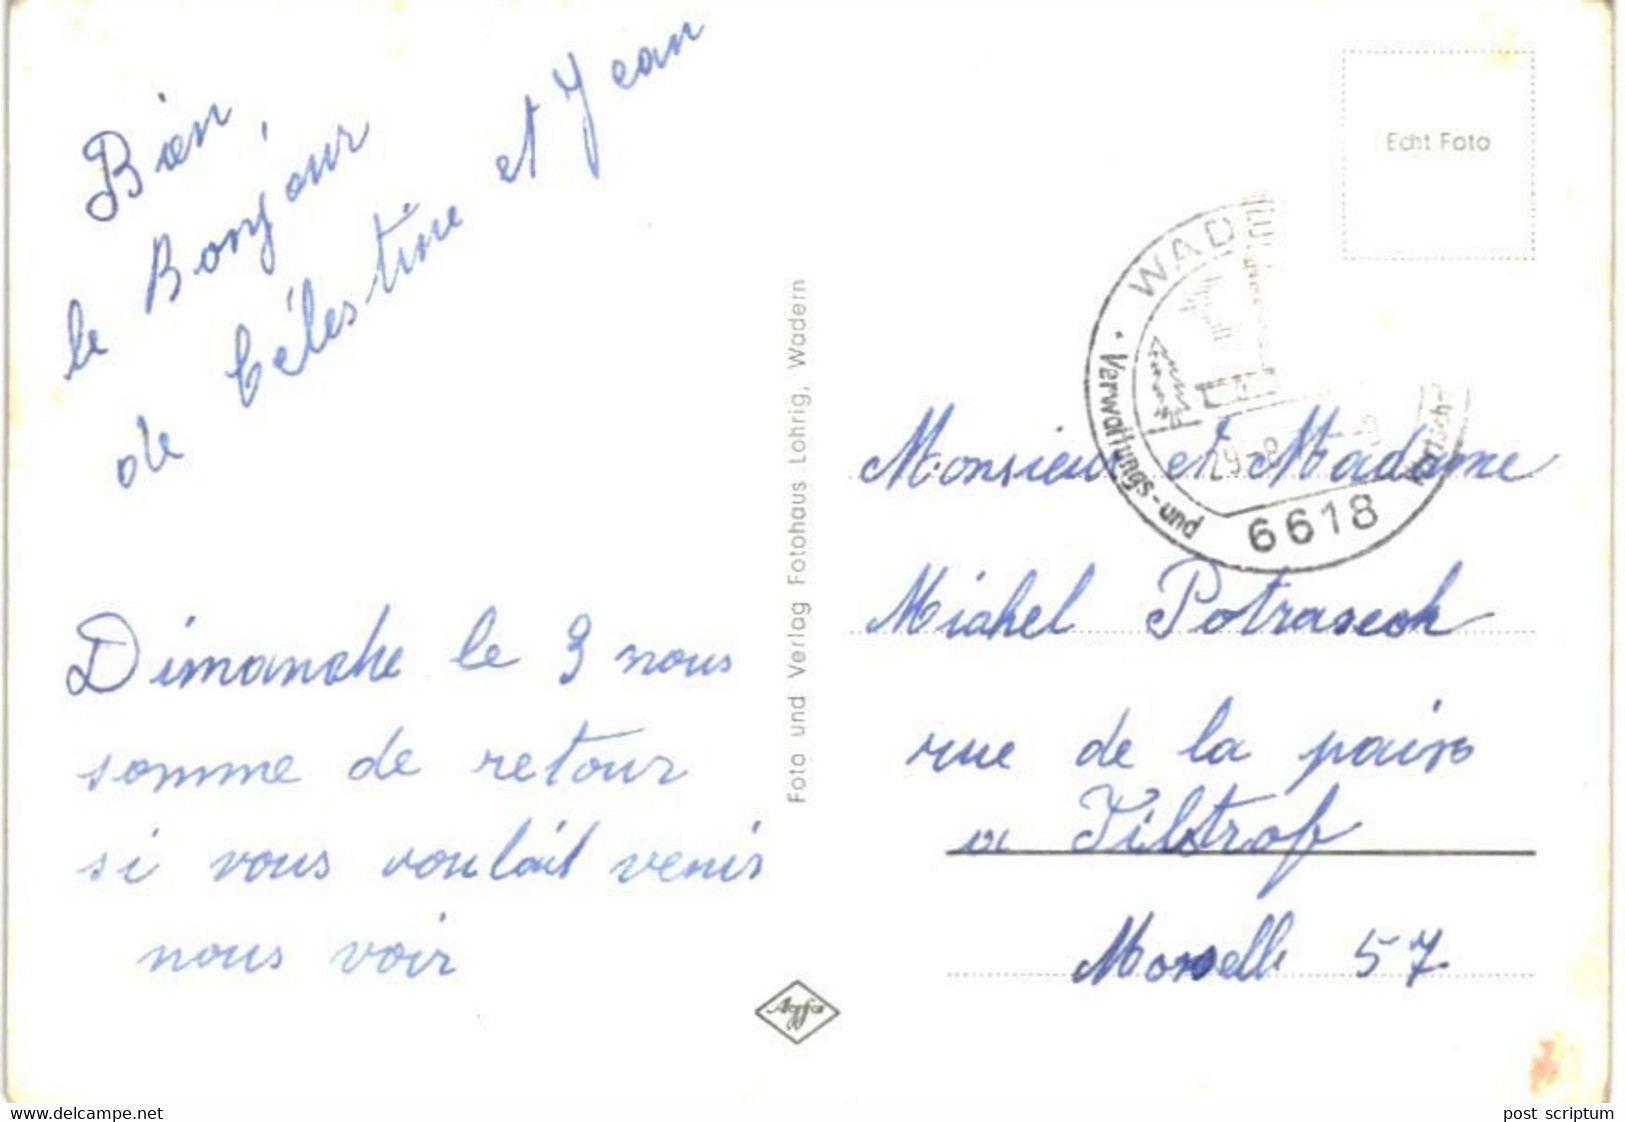 Bien,
le Bonjour
de Célestine et Jean
Dimanche le 3 nous
somme de retour
si vous voulait venir
nous voir
Foto und Verlag Fotohaus Lohrig, Wadern
Agfa
Echt Foto
WADE
Verwaltungs- und
6618
Monsieur et Madame
Michel
rue de la paix
a Filstrof
Moselle 57
www.delcampe.net
post scriptum